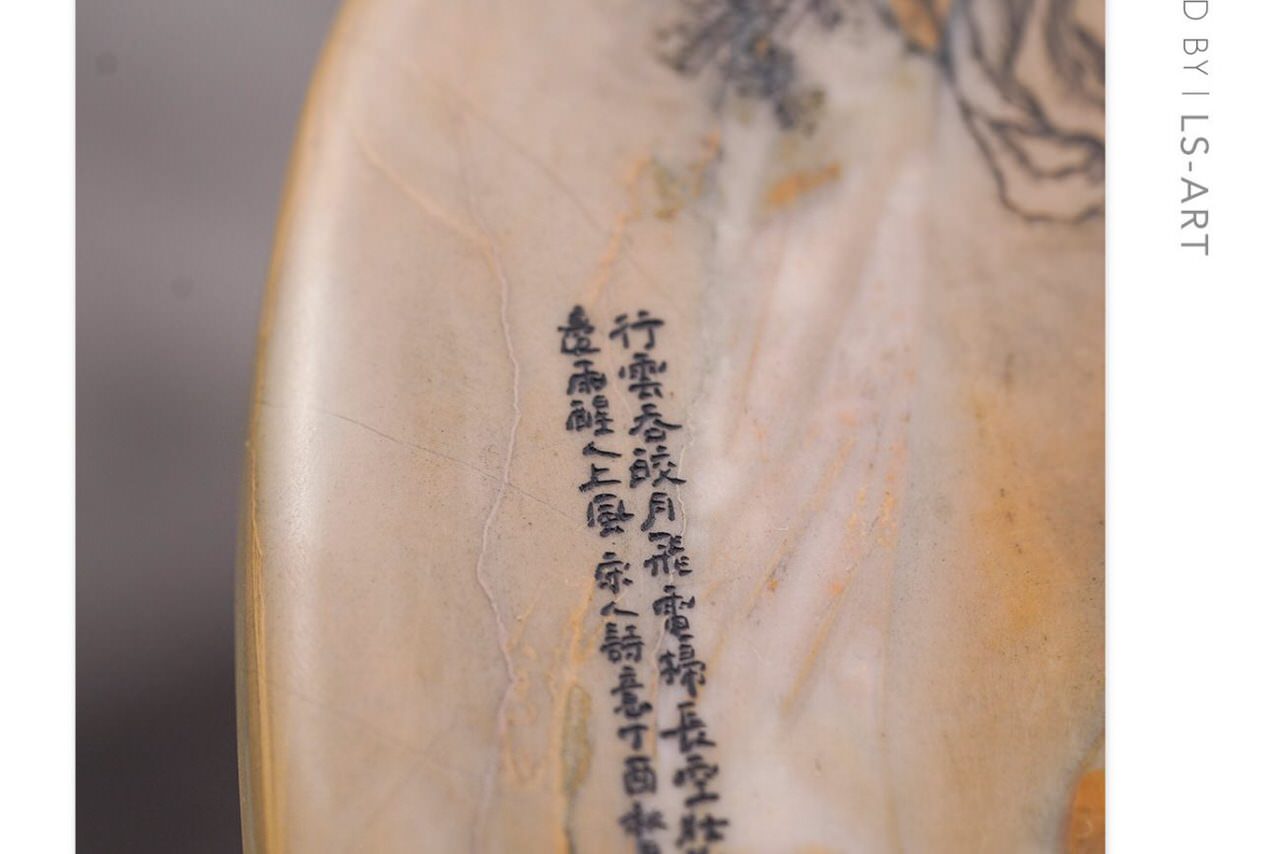 行雲吞皎月飛電掃長空壯
邊雨醒人上風 宋人詩意丁酉秋
D BY | LS-ART